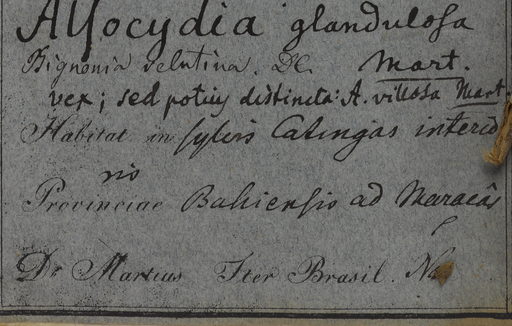 Alsocydia glandulosa
Bignonia velutina. DC. Mart.
vex; sed potius distincta: A. villosa Mart.
Habitat in sylvis Catingas interio
ris
Provinciae Bahiensis ad Maracâs
Dr Martius Iter Brasil. No